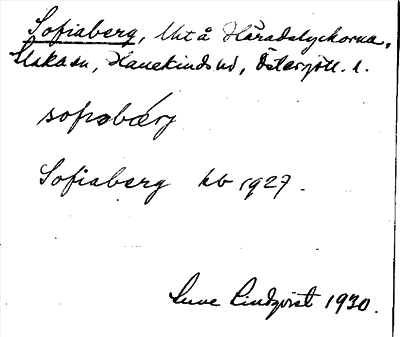 Sofiaberg, Mtå Häradslyckorna,
Slaka sn, Hanekinds hd, Östergötl. l.
sofiabærj
Sofiaberg kb 1927.
Sune Lindqvist 1930.